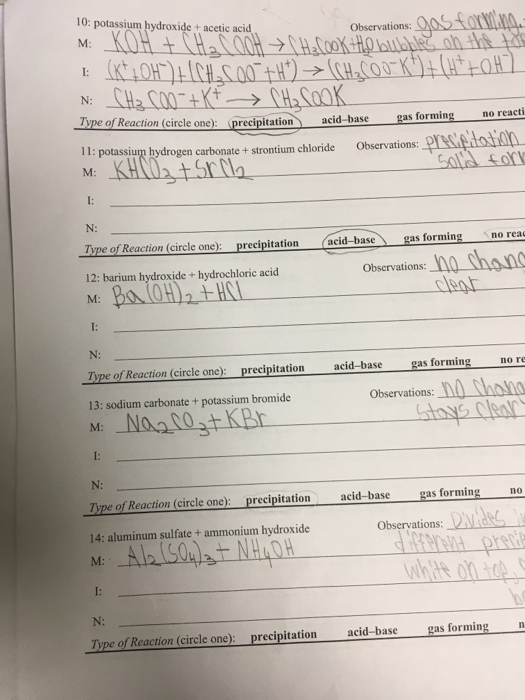 10: potassium hydroxide + acetic acid Observations: gas forming,
M: KOH + CH3COOH → CH3COOK+H2O bubbles on the
I: (K+ + OH-) + (CH3COO- + H+) → (CH3COO-K+) + (H+ + OH-)
N: CH3COO- + K+ → CH3COOK
Type of Reaction (circle one): precipitation acid–base gas forming no reacti
11: potassium hydrogen carbonate + strontium chloride Observations: precipitation
M: KHCO3 + SrCl2 Solid form
I:
N:
Type of Reaction (circle one): precipitation acid–base gas forming no reac
12: barium hydroxide + hydrochloric acid Observations: no chang
M: Ba(OH)2 + HCl clear
I:
N:
Type of Reaction (circle one): precipitation acid–base gas forming no re
13: sodium carbonate + potassium bromide Observations: no chang
M: Na2CO3 + KBr stays clear
I:
N:
Type of Reaction (circle one): precipitation acid–base gas forming no
14: aluminum sulfate + ammonium hydroxide Observations: Divides
M: Al2(SO4)3 + NH4OH different precip
white on top,
I:
N:
Type of Reaction (circle one): precipitation acid–base gas forming n